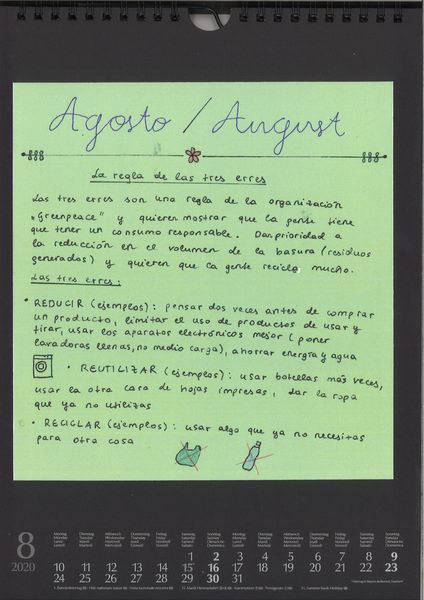 Agosto / August
La regla de las tres erres
Las tres erres son una regla de la organización
„Greenpeace" y quieren mostrar que la gente tiene
que tener un consumo responsable. Dan prioridad a
la reducción en el volumen de la basura (residuos
generados) y quieren que la gente recicle mucho.
Las tres erres:
• REDUCIR (ejemplos): pensar dos veces antes de comprar
un producto, limitar el uso de productos de usar y
tirar, usar los aparatos electrónicos mejor (poner
lavadoras llenas, no medio carga), ahorrar energía y agua
• REUTILIZAR (ejemplo): usar botellas más veces,
usar la otra cara de hojas impresas, dar la ropa
que ya no utilizas
• RECICLAR (ejemplos): usar algo que ya no necesitas
para otra cosa
8
2020
Montag Dienstag Mittwoch Donnerstag Freitag Samstag Sonntag Montag Dienstag Mittwoch Donnerstag Freitag Samstag Sonntag
Monday Tuesday Wednesday Thursday Friday Saturday Sunday Monday Tuesday Wednesday Thursday Friday Saturday Sunday
1 2 3 4 5 6 7 8 9
10 11 12 13 14 15 16 17 18 19 20 21 22 23
24 25 26 27 28 29 30 31